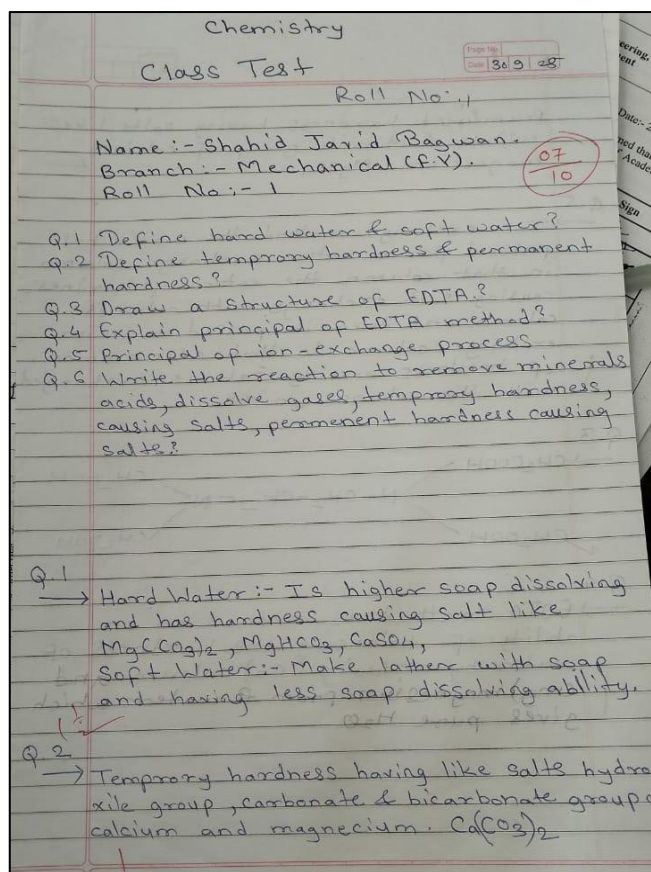 Chemistry
Page No.
Date 30 9 23
Class Test
Roll No:-
Name :- Shahid Javid Bagwan.
Branch :- Mechanical (F.Y).
Roll No :- 1
07
10
Q.1 Define hard water & soft water?
Q.2 Define temprory hardness & permanent
hardness?
Q.3 Draw a structure of EDTA.?
Q.4 Explain principal of EDTA method?
Q.5 Principal of ion-exchange process
Q.6 Write the reaction to remove minerals
acids, dissolve gases, temprory hardness,
causing salts, permenent hardness causing
salts?
Q.1
→ Hard Water :- Is higher soap dissolving
and has hardness causing salt like
Mg(CO3)2, MgHCO3, CaSO4,
Soft Water :- Make lather with soap
and having less soap dissolving ability.
Q.2
→ Temprory hardness having like salts hydro
xile group, carbonate & bicarbonate group
calcium and magnecium. Ca(CO3)2
eering,
ent
Date:- 2
med tha
Acade
Sign